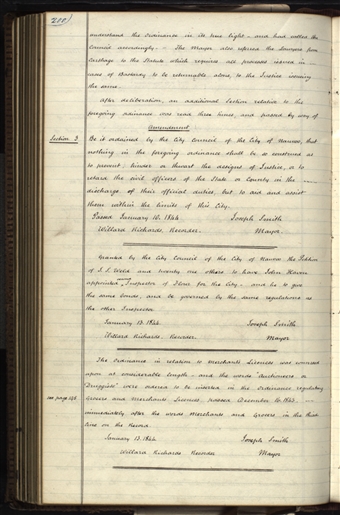 200
understand the Ordinance in its true light, and had called the
Council accordingly. The Mayor also referred the Lawyers from
Carthage to the Statute which requires all process issued in
case of Bastardy to be returnable alone to the Justice issuing
the same.
After deliberation, an additional Section relative to the
foregoing ordinance was read three times, and passed by way of
Amendment.
Section 3.
Be it ordained by the City Council of the City of Nauvoo, that
nothing in the foregoing ordinance shall be so construed as
to prevent, hinder or thwart the designs of Justice, or to
retard the civil officers of the State or County in the
discharge of their official duties, but to aid and assist
them within the limits of this City.
Passed January 10. 1844. Joseph Smith
Willard Richards, Recorder. Mayor.
Granted by the City Council of the City of Nauvoo, the Petition
of S. L. Weld and twenty one others to have John
appointed Inspector of Flour for the City - and he to give
the same bonds, and be governed by the same regulations as
the other Inspector
January 13. 1844. Joseph Smith
Willard Richards, Recorder. Mayor
The Ordinance in relation to Merchants Licenses was
upon at considerable length - and the words "Auctioneers or
Druggists" were ordered to be inserted in the Ordinance regulating
see page
Grocers and Merchants Licenses, passed December 16. 1843.
immediately after the words Merchants and Grocers in the third
line on the Record.
January 13. 1844 Joseph Smith
Willard Richards Recorder Mayor